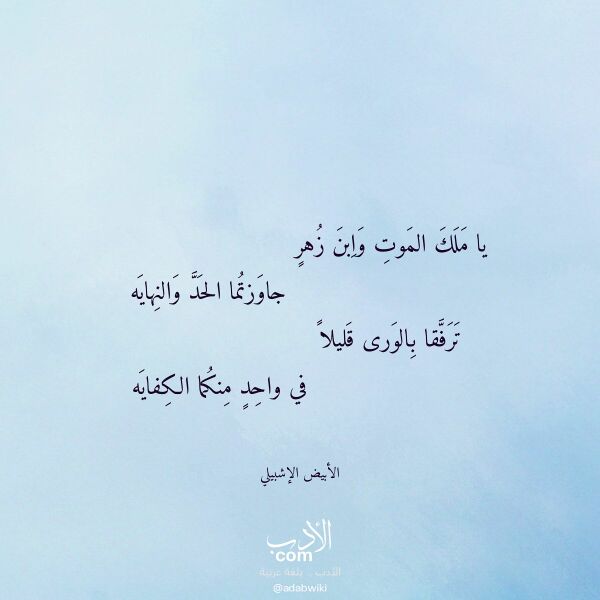 يا مَلَكَ المَوتِ وَاِبنَ زُهرٍ
جاوَزتُما الحَدَّ وَالنِهايَه
تَرَفَّقا بِالوَرى قَليلاً
في واحِدٍ مِنكُما الكِفايَه
الأبيض الإشبيلي
الأدب
com
الأدب .. بلغة عربية
@adabwiki